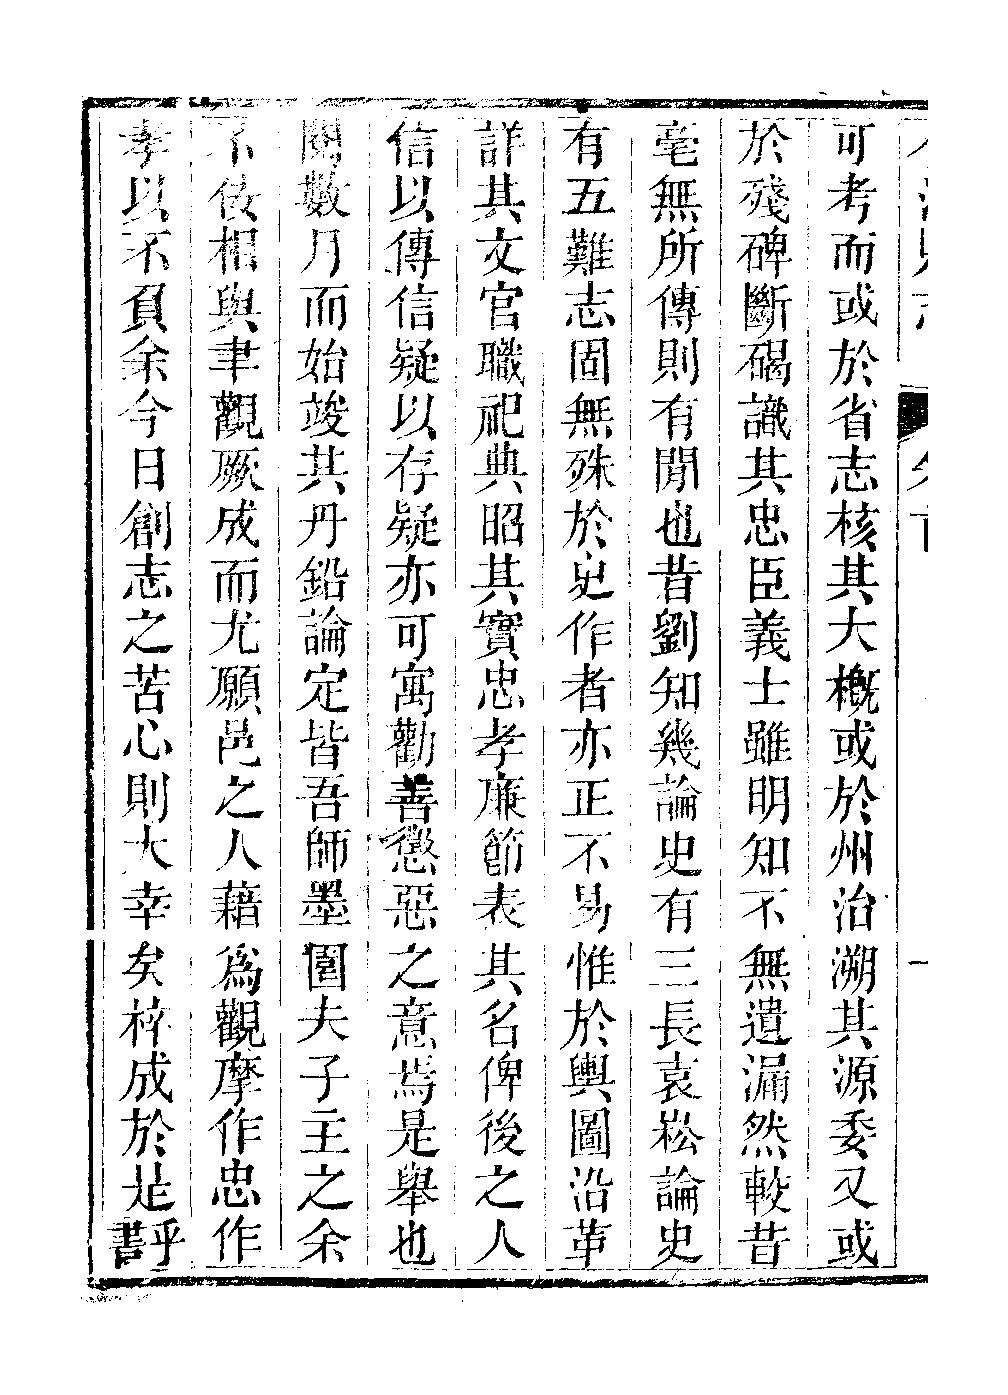 可考而或於省志核其大槪或於州治溯其源委又或
於殘碑斷碣識其忠臣義士雖明知不無遺漏然較昔
毫無所傳則有聞也昔劉知幾論史有三長袁崧論史
有五難志固無殊於史作者亦正不易惟於輿圖沿革
詳其文官職祀典昭其實忠孝廉節表其名俾後之人
信以傳信疑以存疑亦可寓勸善懲惡之意焉是舉也
閱數月而始竣其丹鉛論定皆吾師墨園夫子主之余
不佞相與聿觀厥成而尤願邑之人藉爲觀摩作忠作
孝以不負余今日創志之苦心則大幸矣梓成於是乎書